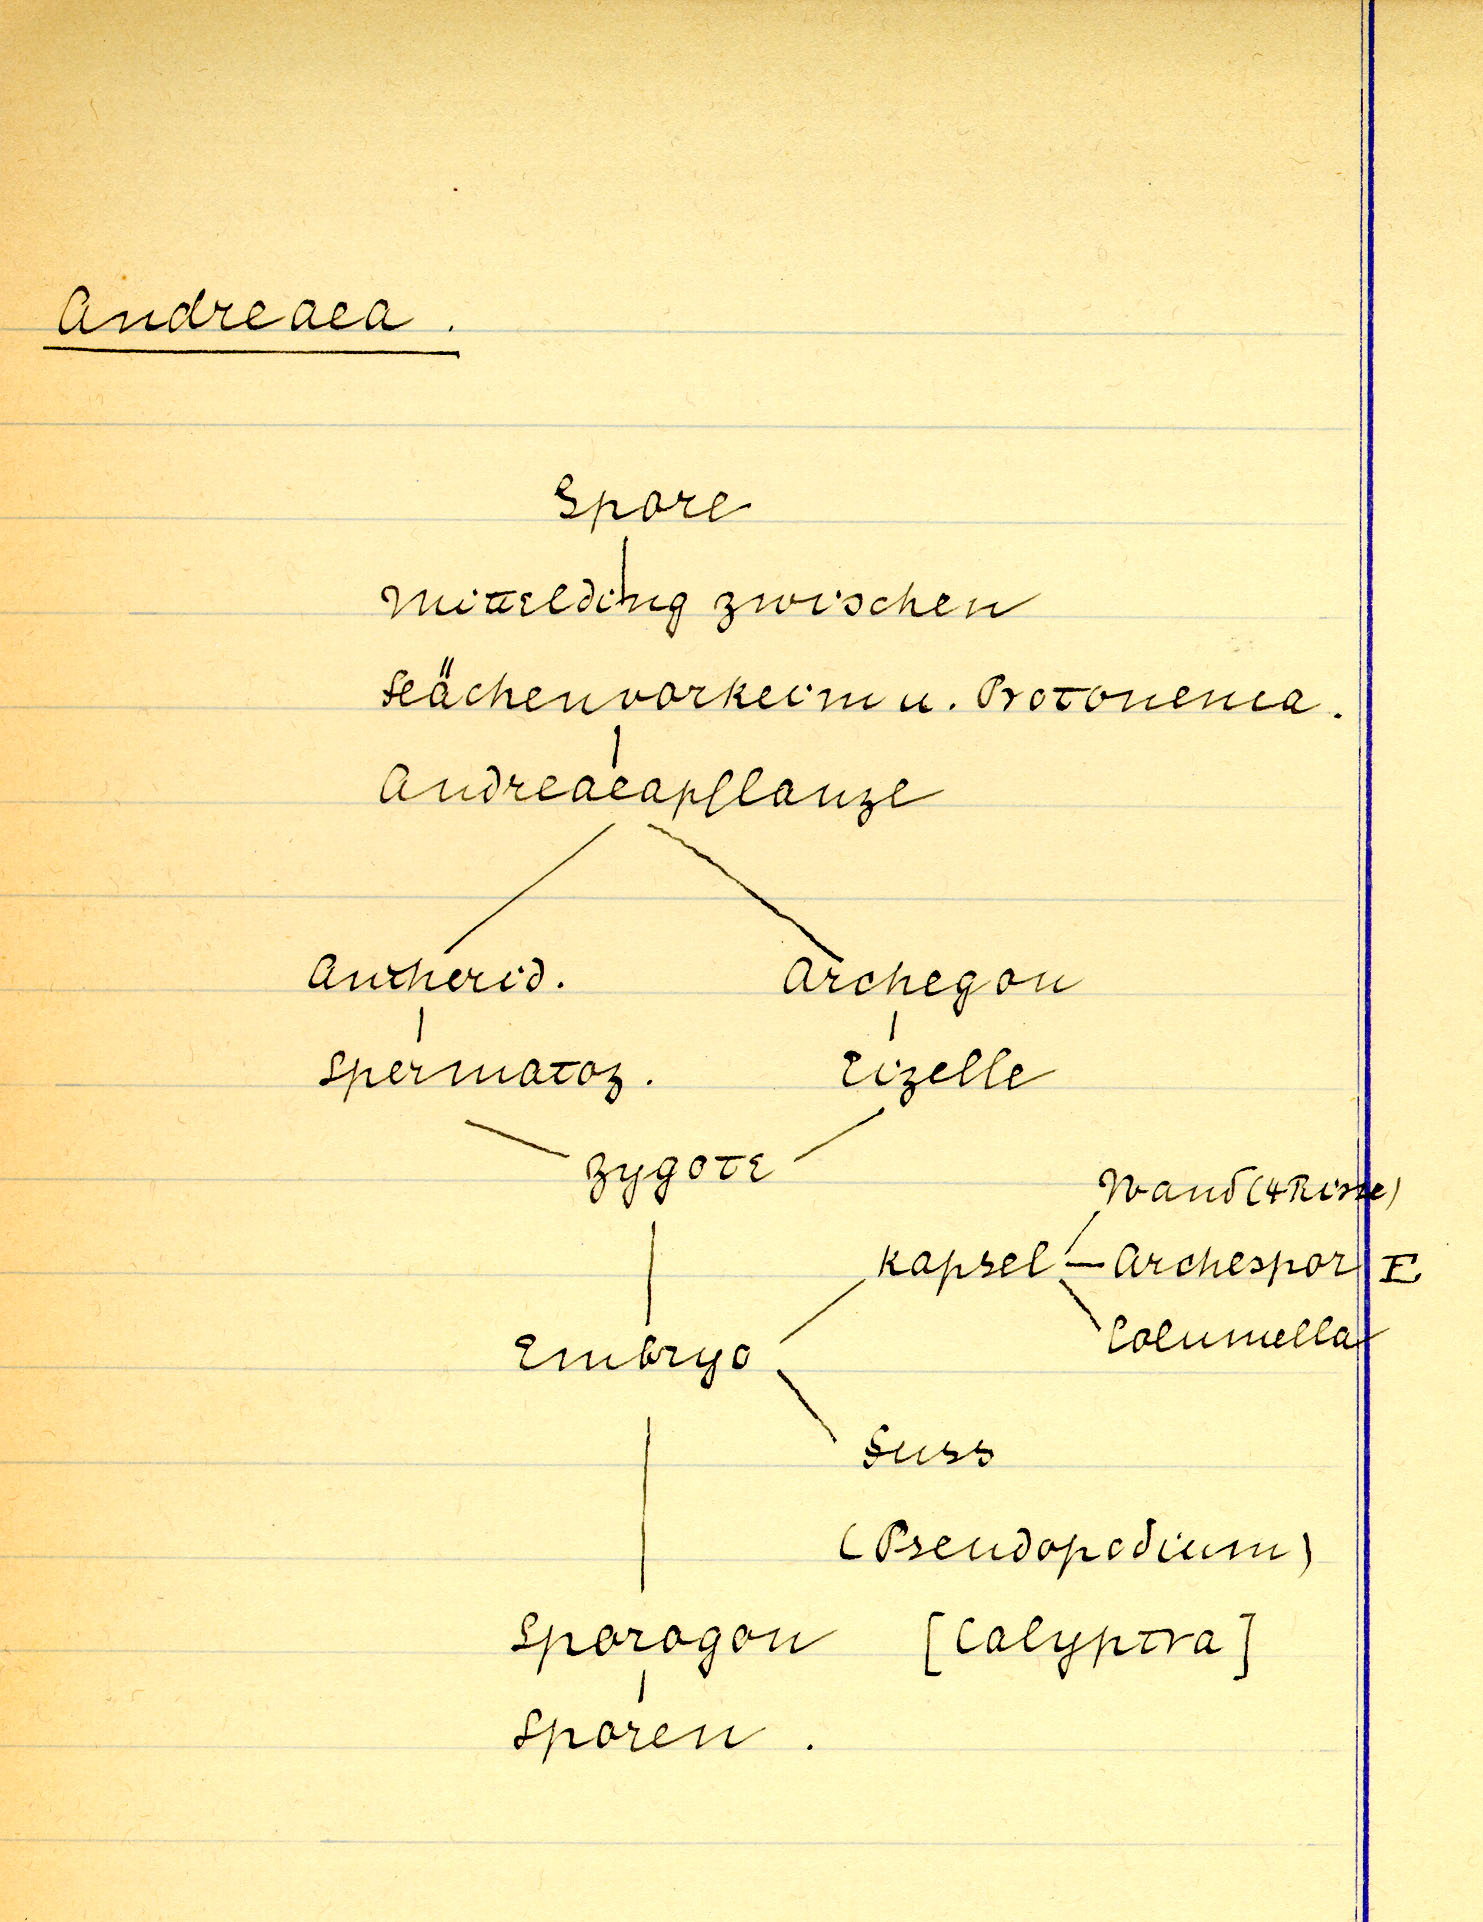 Andreaea.
Spore
Mittelding zwischen
Flächenvorkeim u. Protonema.
Andreaeapflanze
Antherid. Archegon
Spermatoz. Eizelle
Zygote
Wand (4 Risse)
Kapsel — Archespor E
Columella
Embryo
Fuss
(Pseudopodium)
Sporogon [Calyptra]
Sporen.